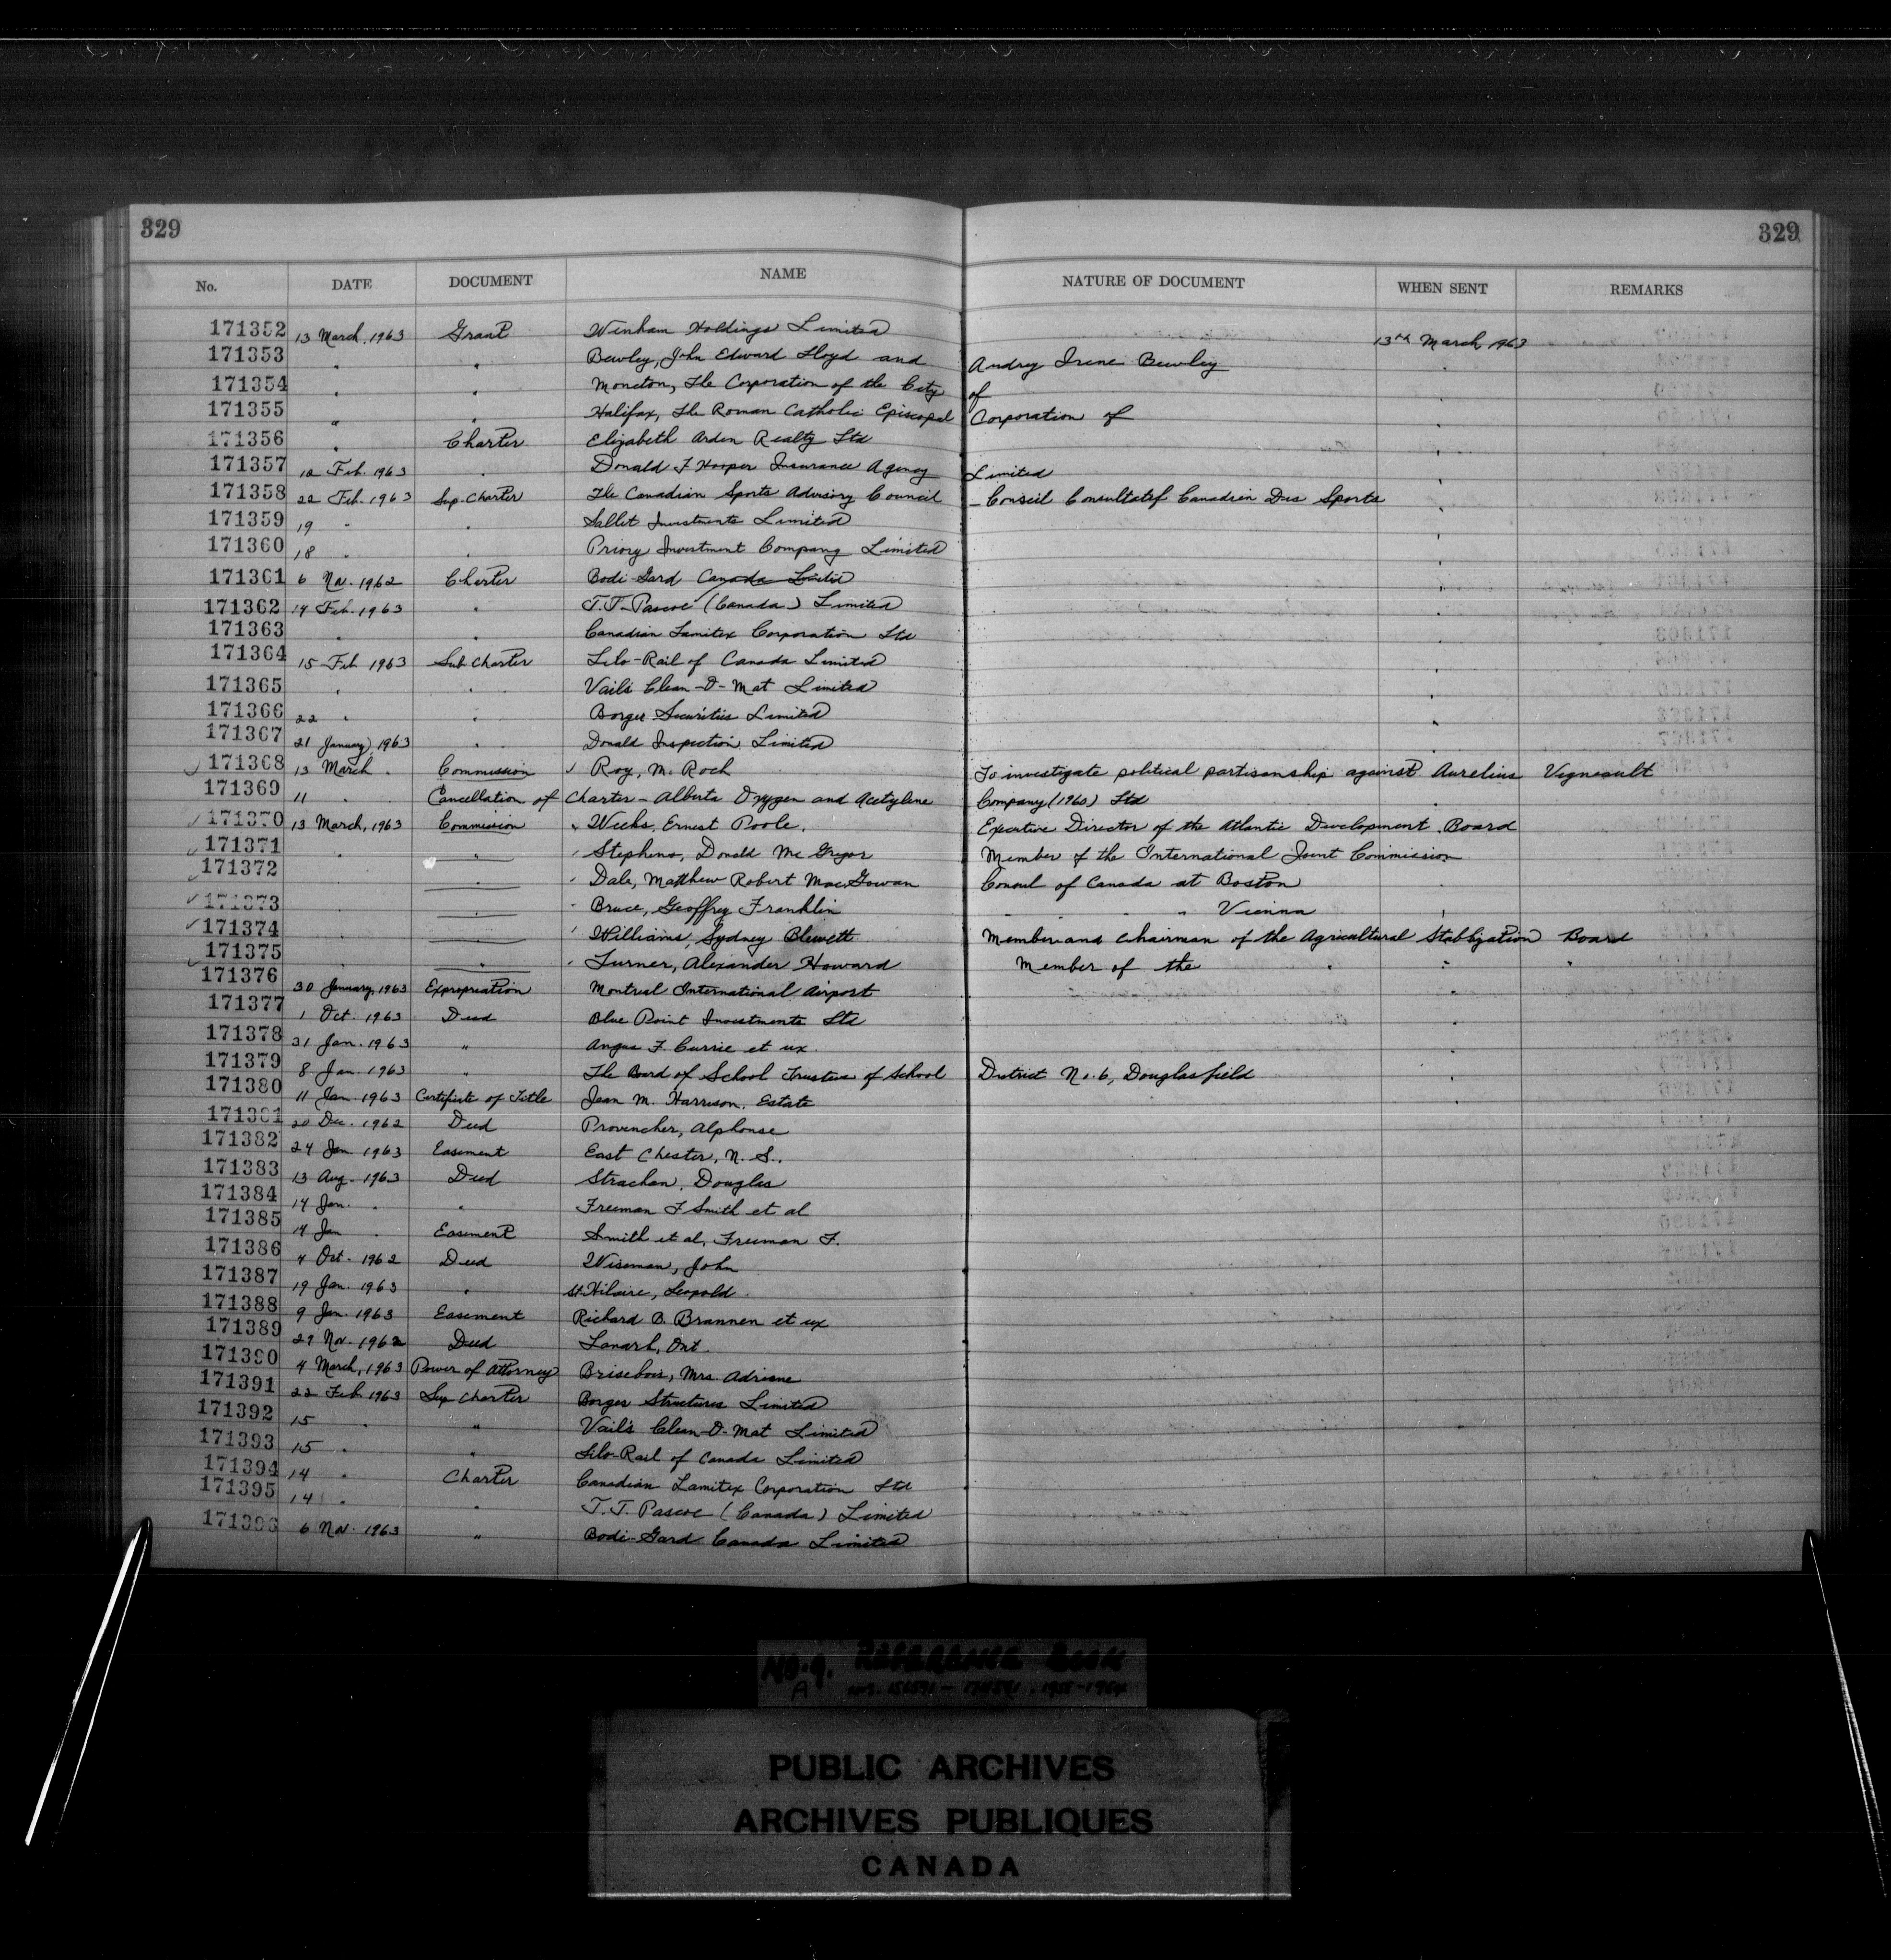 329 329
No. DATE DOCUMENT NAME NATURE OF DOCUMENT WHEN SENT REMARKS
171352 13 March, 1963 Grant Winham Holdings Limited 13th March, 1963
171353 " " Bewley, John Edward Lloyd and Audrey Irene Bewley "
171354 " " Moncton, The Corporation of the City of "
171355 " " Halifax, The Roman Catholic Episcopal Corporation of "
171356 " Charter Elizabeth Arden Realty Ltd "
171357 12 Feb. 1963 " Donald F Hooper Insurance Agency Limited "
171358 22 Feb. 1963 Sup. Charter The Canadian Sports Advisory Council - Conseil Consultatif Canadien Des Sports "
171359 19 " " Sallet Investments Limited "
171360 18 " " Priory Investment Company Limited "
171361 6 Nov. 1962 Charter Bodi-Gard Canada Limited "
171362 14 Feb. 1963 " T.T. Pascoe (Canada) Limited "
171363 " " Canadian Lamitex Corporation Ltd "
171364 15 Feb 1963 Sub Charter Lilo-Rail of Canada Limited "
171365 " " Vail's Clean-O-Mat Limited "
171366 22 " " Borger Securities Limited "
171367 21 January, 1963 " Donald Inspection Limited "
171368 13 March " Commission Roy, M. Roch To investigate political partisanship against Aurelius Vigneault
171369 11 " Cancellation of Charter - Alberta Oxygen and Acetylene Company (1960) Ltd "
171370 13 March, 1963 Commission Weeks, Ernest Poole. Executive Director of the Atlantic Development Board
171371 " " Stephens, Donald McGregor Member of the International Joint Commission
171372 " " Dale, Matthew Robert MacGowan Consul of Canada at Boston "
171373 " " Bruce, Geoffrey Franklin " " " " Vienna "
171374 " " Williams, Sydney Blewett Member and Chairman of the Agricultural Stabilization Board
171375 " " Turner, Alexander Howard Member of the " " "
171376 30 January, 1963 Expropriation Montreal International Airport "
171377 1 Oct. 1963 Deed Blue Point Investments Ltd "
171378 31 Jan. 1963 " Angus F. Currie et ux. "
171379 8 Jan. 1963 " The Board of School Trustees of School District No. 6, Douglasfield "
171380 11 Jan. 1963 Certificate of Title Jean M. Harrison, Estate "
171381 20 Dec. 1962 Deed Provencher, Alphonse
171382 24 Jan 1963 Easement East Chester, N.S.
171383 13 Aug. 1963 Deed Strachan, Douglas
171384 14 Jan. " " Freeman F Smith et al
171385 14 Jan " Easement Smith et al, Freeman F.
171386 4 Oct. 1962 Deed Wiseman, John
171387 19 Jan. 1963 " St. Hilaire, Leopold.
171388 9 Jan. 1963 Easement Richard B. Brannen et ux
171389 29 Nov. 1962 Deed Lanark, Ont.
171390 4 March, 1963 Power of Attorney Brisebois, Mrs. Adrienne
171391 22 Feb. 1963 Sup Charter Borger Structures Limited
171392 15 " " Vail's Clean-O-Mat Limited
171393 15 " " Lilo-Rail of Canada Limited
171394 14 " Charter Canadian Lamitex Corporation Ltd
171395 14 " " T.T. Pascoe (Canada) Limited
171396 6 Nov. 1963 " Bodi-Gard Canada Limited
No. 9. REFERENCE BOOK
A
PUBLIC ARCHIVES
ARCHIVES PUBLIQUES
CANADA